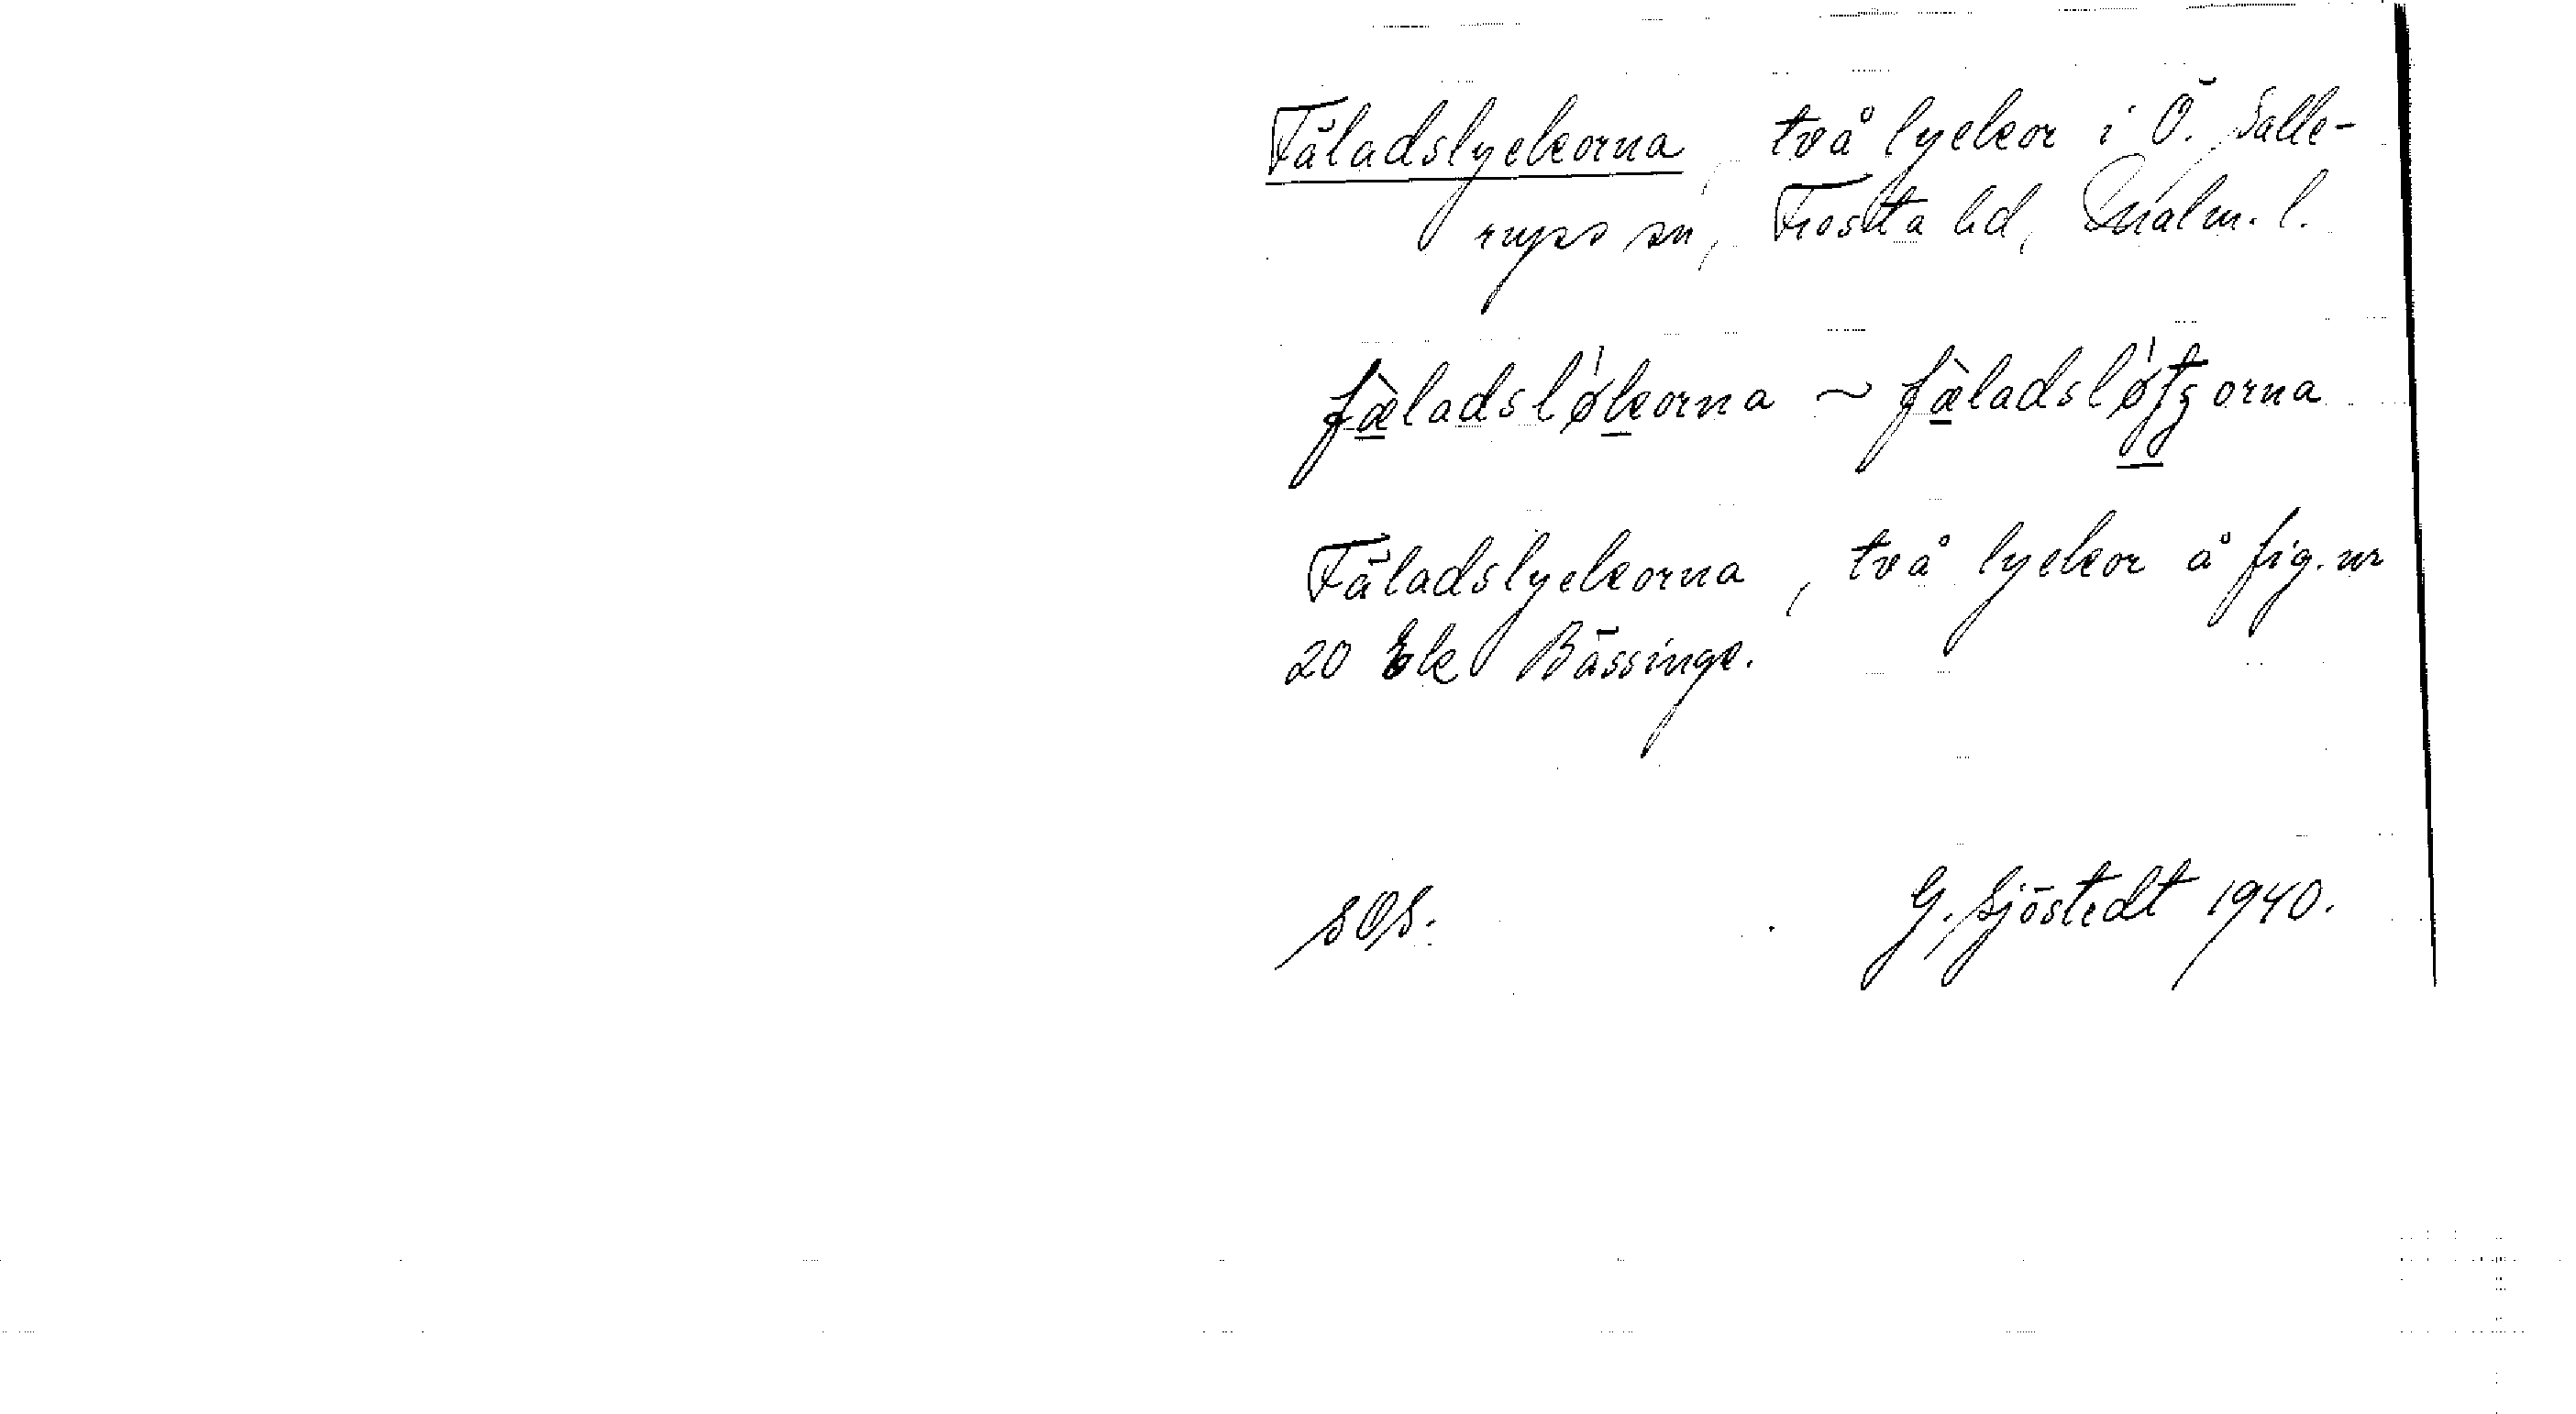 Fäladslyckorna, två lyckor i Ö. Salle-
rups sn, Frosta hd, Malm. l.
fæ̀ladslǿkorna ~ fæ̀ladslǿtʒorna
Fäladslyckorna, två lyckor å fig. nr
20 Ek Bässinge.
SOS. G. Sjöstedt 1940.